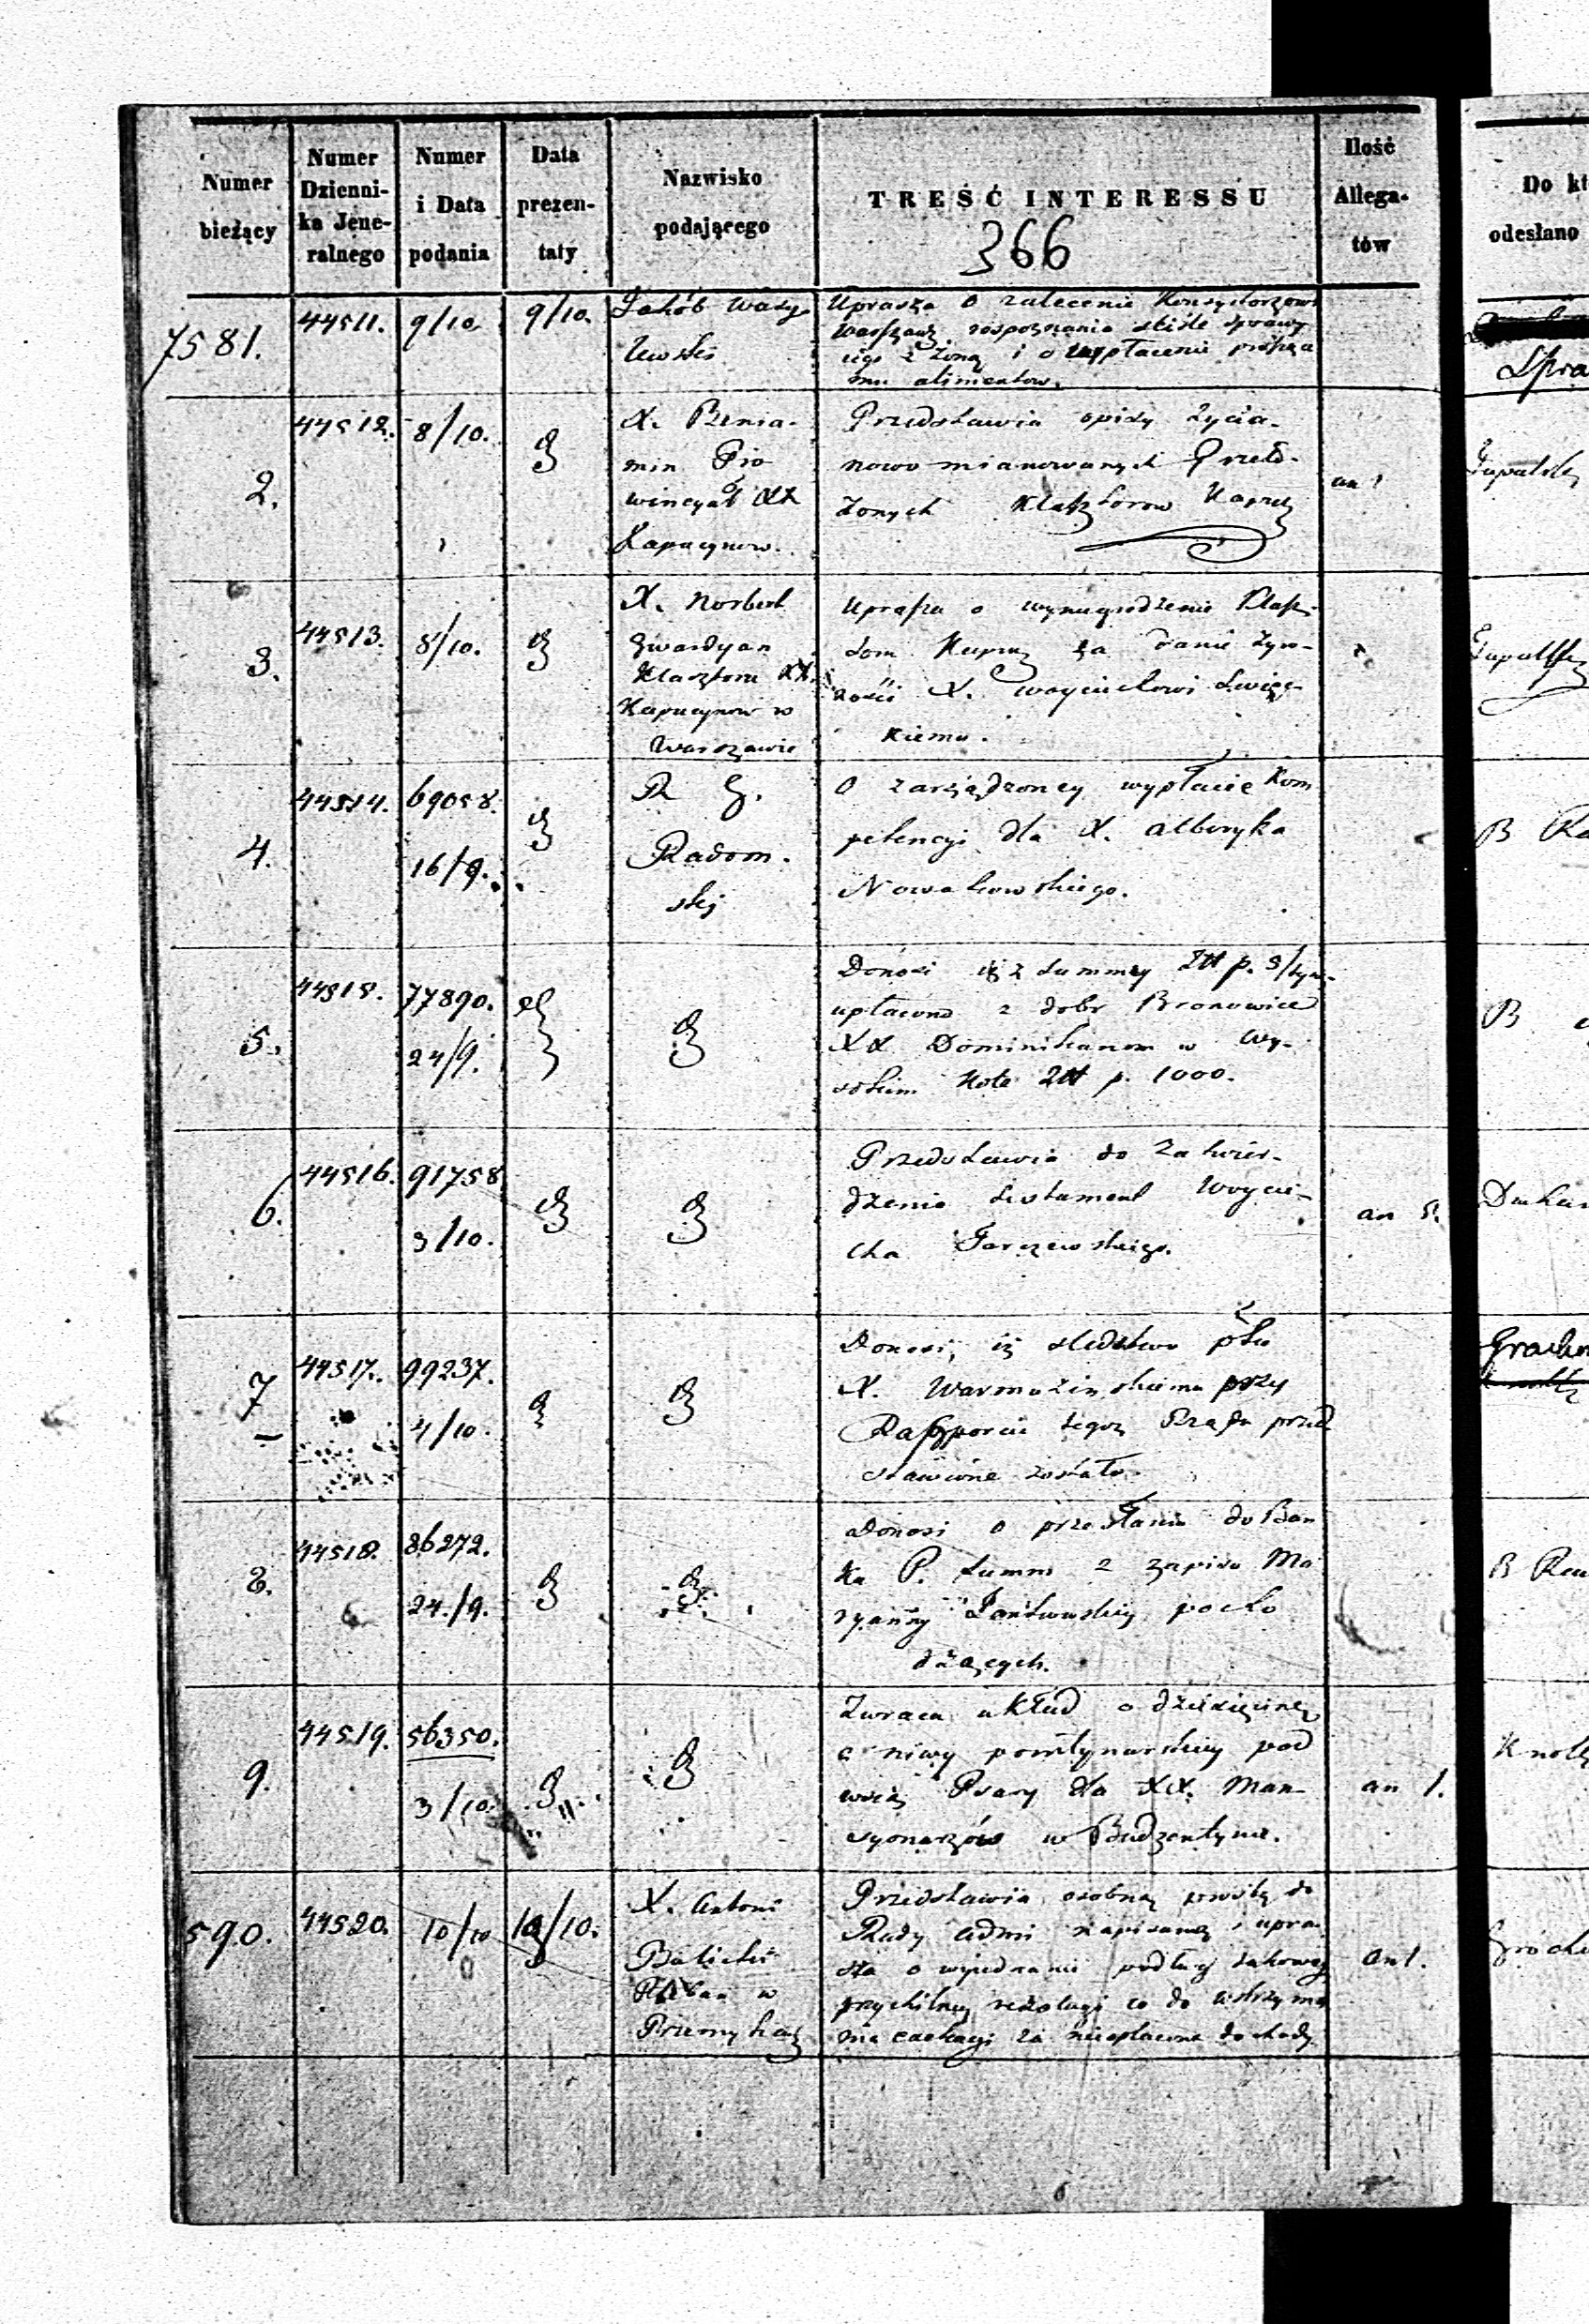 Numer bieżący
Numer Dzienni-ka Jene-ralnego
Numer i Data podania
Data prezen-taty
Nazwisko podającego
TREŚĆ INTERESSU
Ilość Allega-tów
366
Do kt
odesłano
7581.
44511.
9/10.
9/10.
Jakób Wasy-
lewski
Uprasza o zalecenie Konsystorzowi
Warszaws. rozpoznania ściśle sprawy
iego z żoną i o wypłacenie
mu alimentow.
Spra
2.
44512.
8/10.
X. Benia-
min Pro
wincyał XX
Kapucynow.
Przedstawia opisy życia
nowo mianowanych Przeło-
żonych Klasztorow Kapuc
an 1
3.
44513.
8/10.
X. Norbert
Gwardyan
Klasztoru XX.
Kapucynow w
Warszawie
Uprasza o wynagrodzenie Klasz-
torn Kapuc za danie żyw-
ności X. Woyciechowi
kiemu.
4.
44514.
69058.
16/9.
R G.
Radom-
skiej
O zarządzoney wypłacie Kom
petencyi dla X. Alberyka
Nowakowskiego.
B Ra
5.
44515.
77890.
24/9.
Donosi iż z Summy Złł p.
upłacono z dobr Bronowice
XX Dominikanom w Wy-
sokim Kole Złł p. 1000.
B
6.
44516.
91758
3/10.
Przedstawia do zatwier-
dzenia testament Woycie-
cha Jarczewskiego.
an 5.
7
44517.
99237.
4/10.
Donosi, iż sledztwo pko
X. Warmuzinskiemu przy
Rapporcie tegoż Rządu przed
stawione zostało.
8.
44518.
86272.
24./9.
Donosi o przesłaniu do Ban
ku P. Summ z zapisu Ma
ryanny Jankowskiey pocho
dzących.
B
9.
44519.
56350.
3/10.
Zwraca układ o dziesięcinę
z niwy pomłynarskiey pod
wsią Psary dla XX. Man-
syonarzów w Bodzentynie.
an 1.
590.
44520.
10/10
10/10.
X. Antoni
Balicki
Pleban w
Przedstawia osobną prosbę do
Rady Admi napisaną i upra
sza o wyjednanie podług takowey
przychilney rezolucyi co do wstrzyma
nia exekucyi za nieopłacone dochody
an 1.